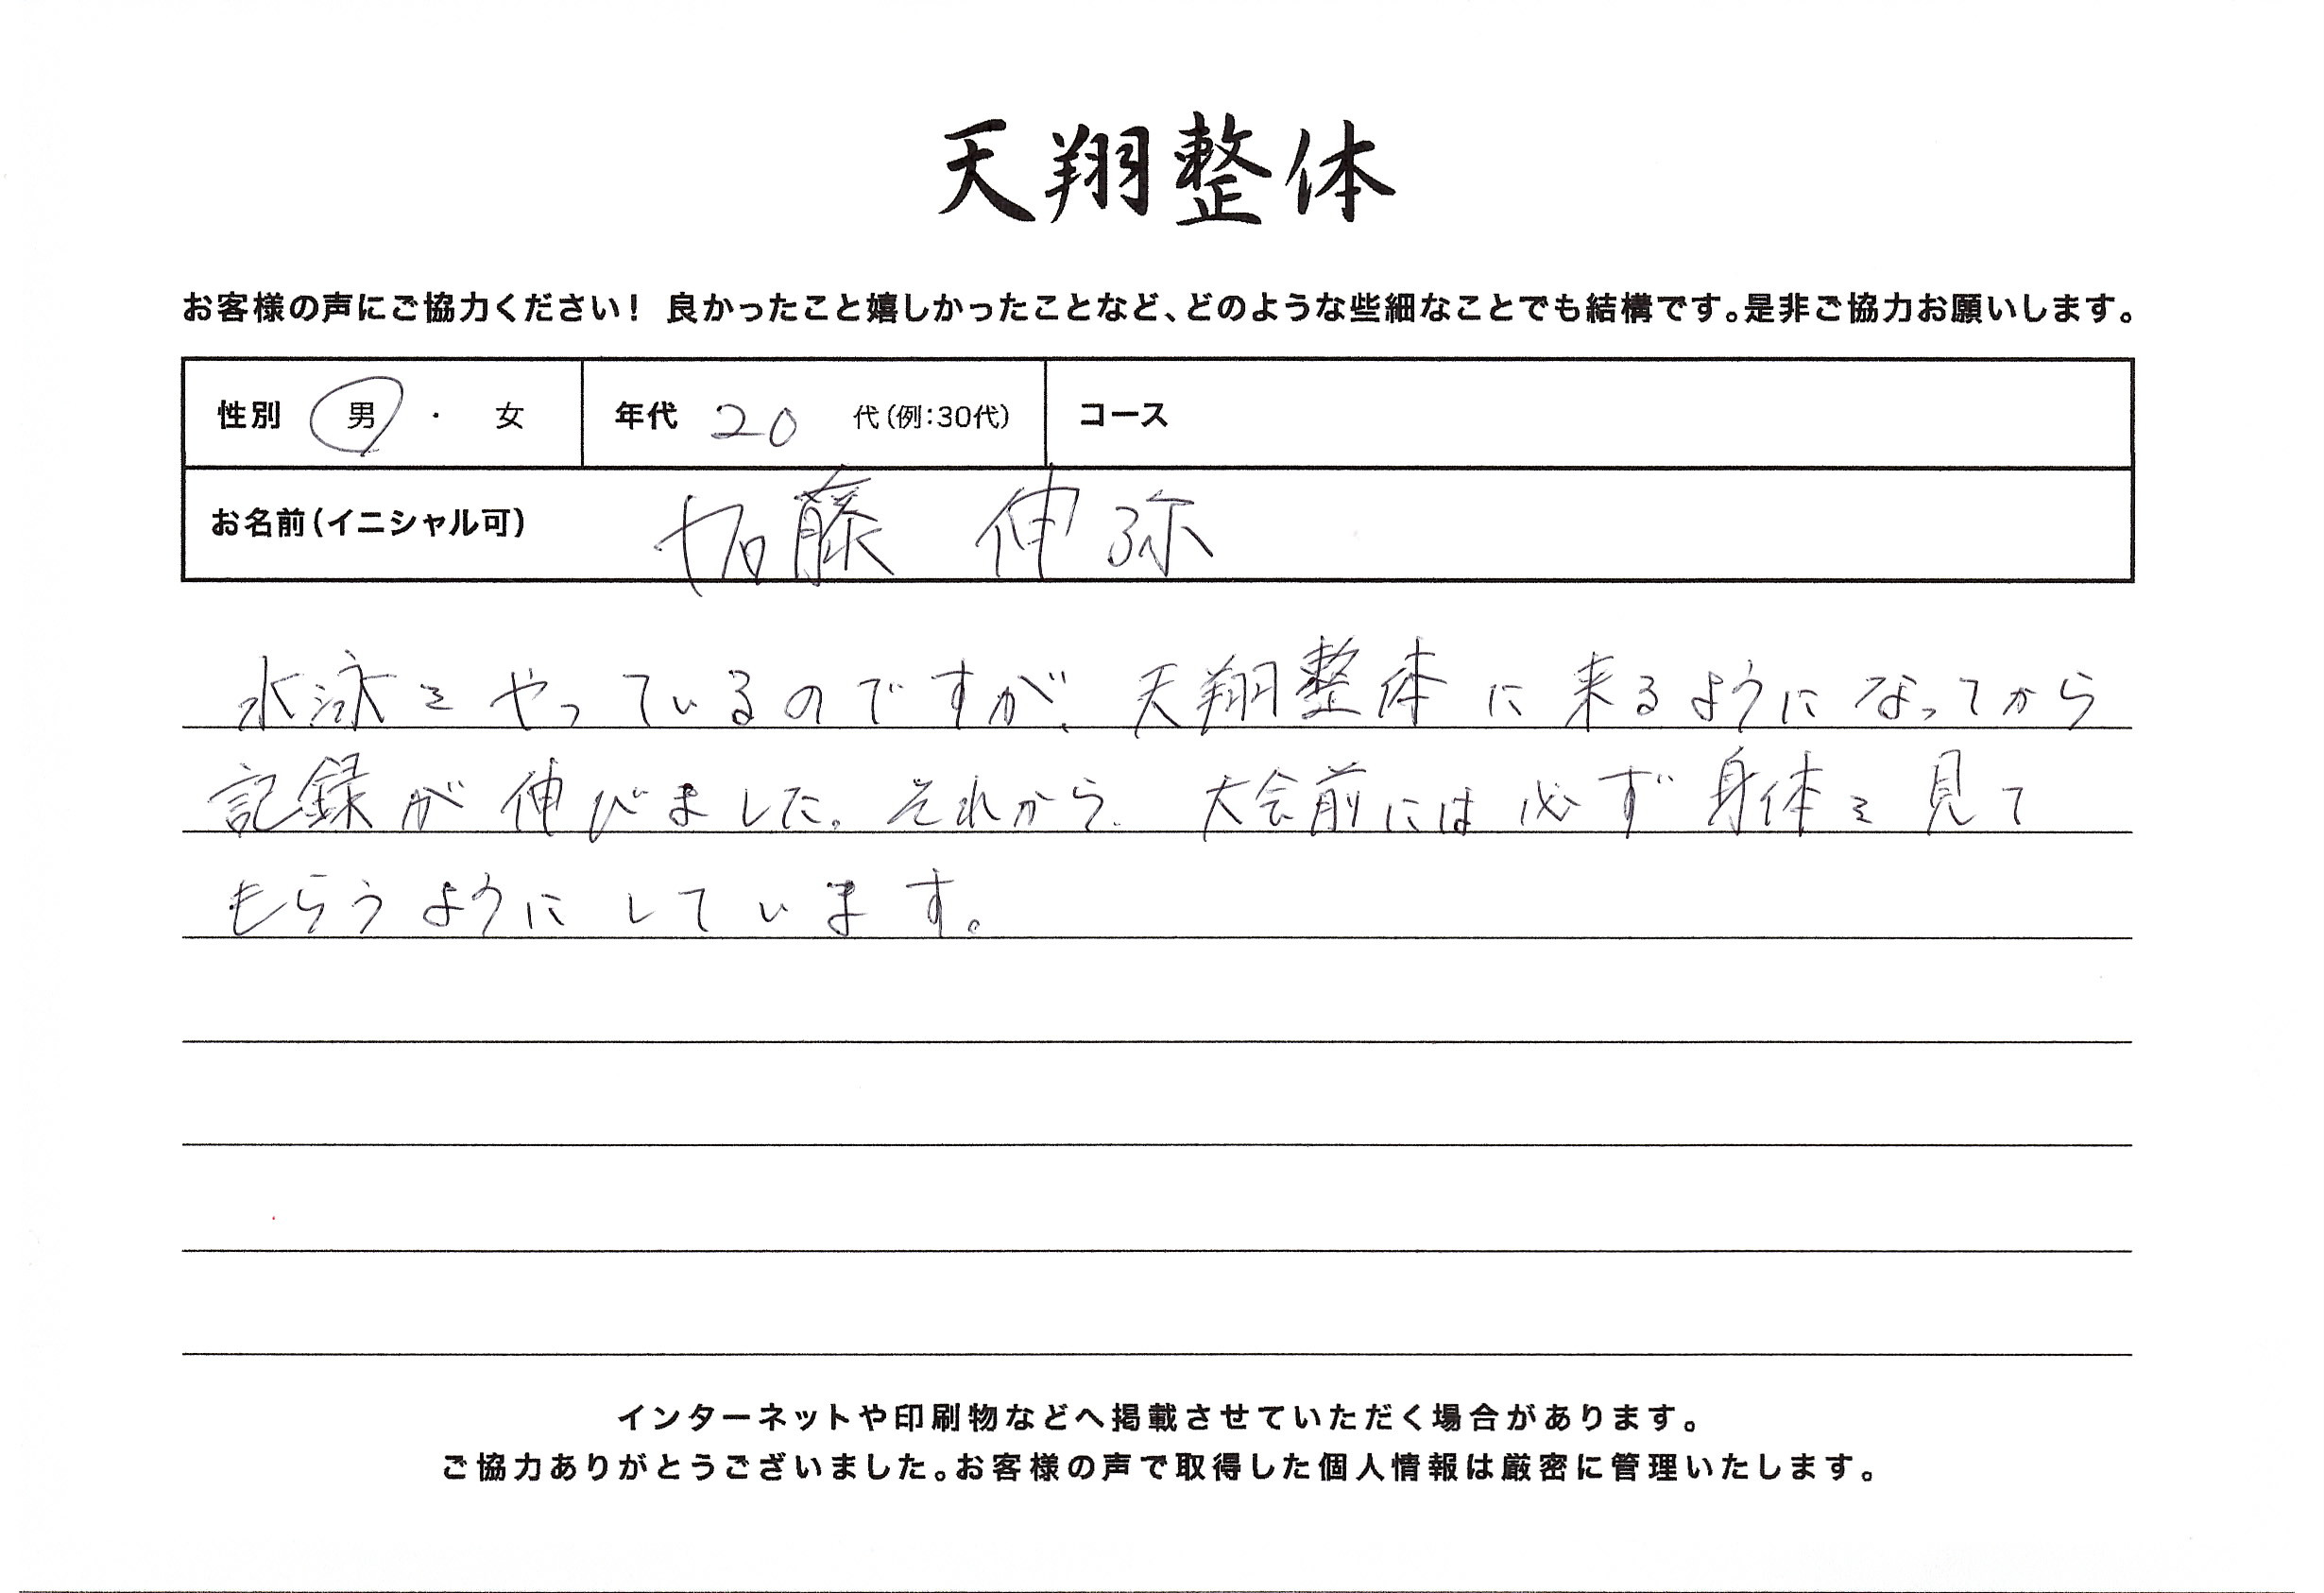 天翔整体
お客様の声にご協力ください！ 良かったこと嬉しかったことなど、どのような些細なことでも結構です。是非ご協力お願いします。
性別 男 ・ 女 年代 20 代（例：30代） コース
お名前（イニシャル可） 加藤 伸弥
水泳をやっているのですが、天翔整体に来るようになってから
記録が伸びました。それから、大会前には必ず身体を見て
もらうようにしています。
インターネットや印刷物などへ掲載させていただく場合があります。
ご協力ありがとうございました。お客様の声で取得した個人情報は厳密に管理いたします。